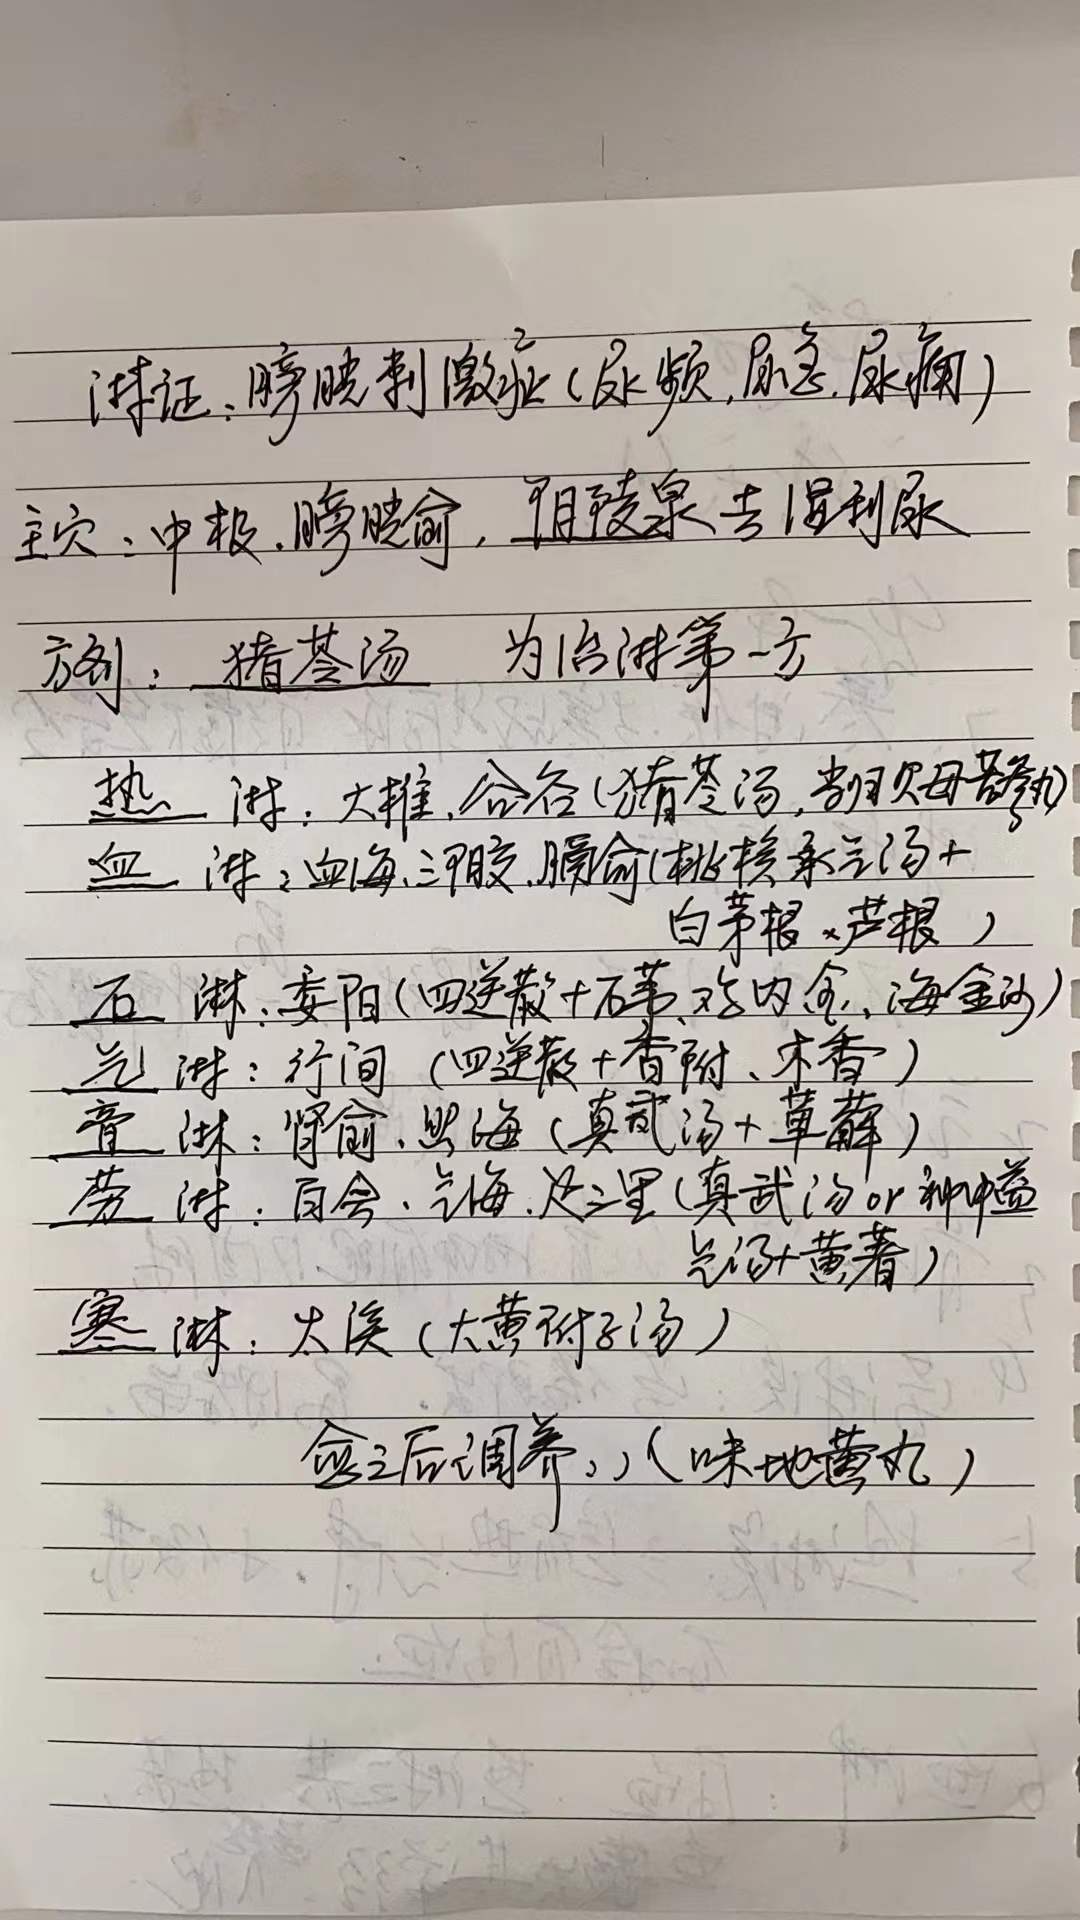 淋证：膀胱刺激征（尿频，尿急，尿痛）
主穴：中极、膀胱俞，阴陵泉去湿利尿
方剂：猪苓汤 为治淋第一方
热淋：大椎、合谷（猪苓汤，当归贝母苦参丸）
血淋：血海、三阴交、膈俞（桃核承气汤+
白茅根、芦根）
石淋：委阳（四逆散+石苇、鸡内金、海金沙）
气淋：行间（四逆散+香附、木香）
膏淋：肾俞、照海（真武汤+萆薢）
劳淋：百会、气海、足三里（真武汤or补中益
气汤+黄蓍）
寒淋：太溪（大黄附子汤）
愈之后调养：八味地黄丸）